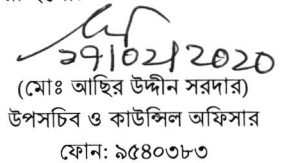 ২৭/০২/২০২০
(মোঃ আছির উদ্দীন সরদার)
উপসচিব ও কাউন্সিল অফিসার
ফোন: ৯৫৪০৩৮৩